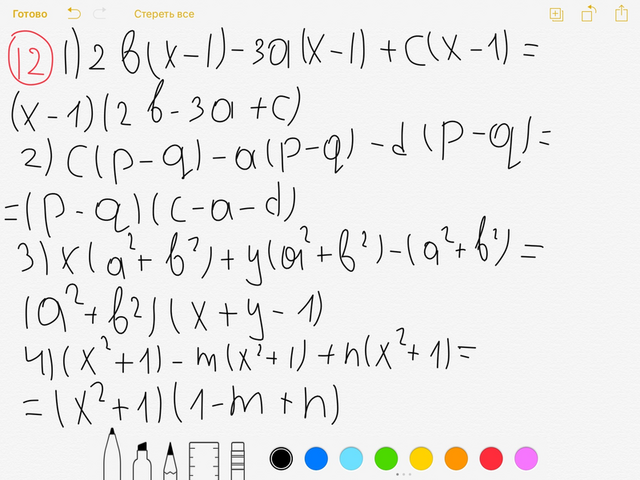 Готово Стереть все
12 1) 2в(x-1)-3a(x-1)+c(x-1)=
(x-1)(2в-3a+c)
2) c(p-q)-a(p-q)-d(p-q)=
=(p-q)(c-a-d)
3) x(a²+в²)+y(a²+в²)-(a²+в²)=
(a²+в²)(x+y-1)
4) (x²+1)-m(x²+1)+n(x²+1)=
=(x²+1)(1-m+n)